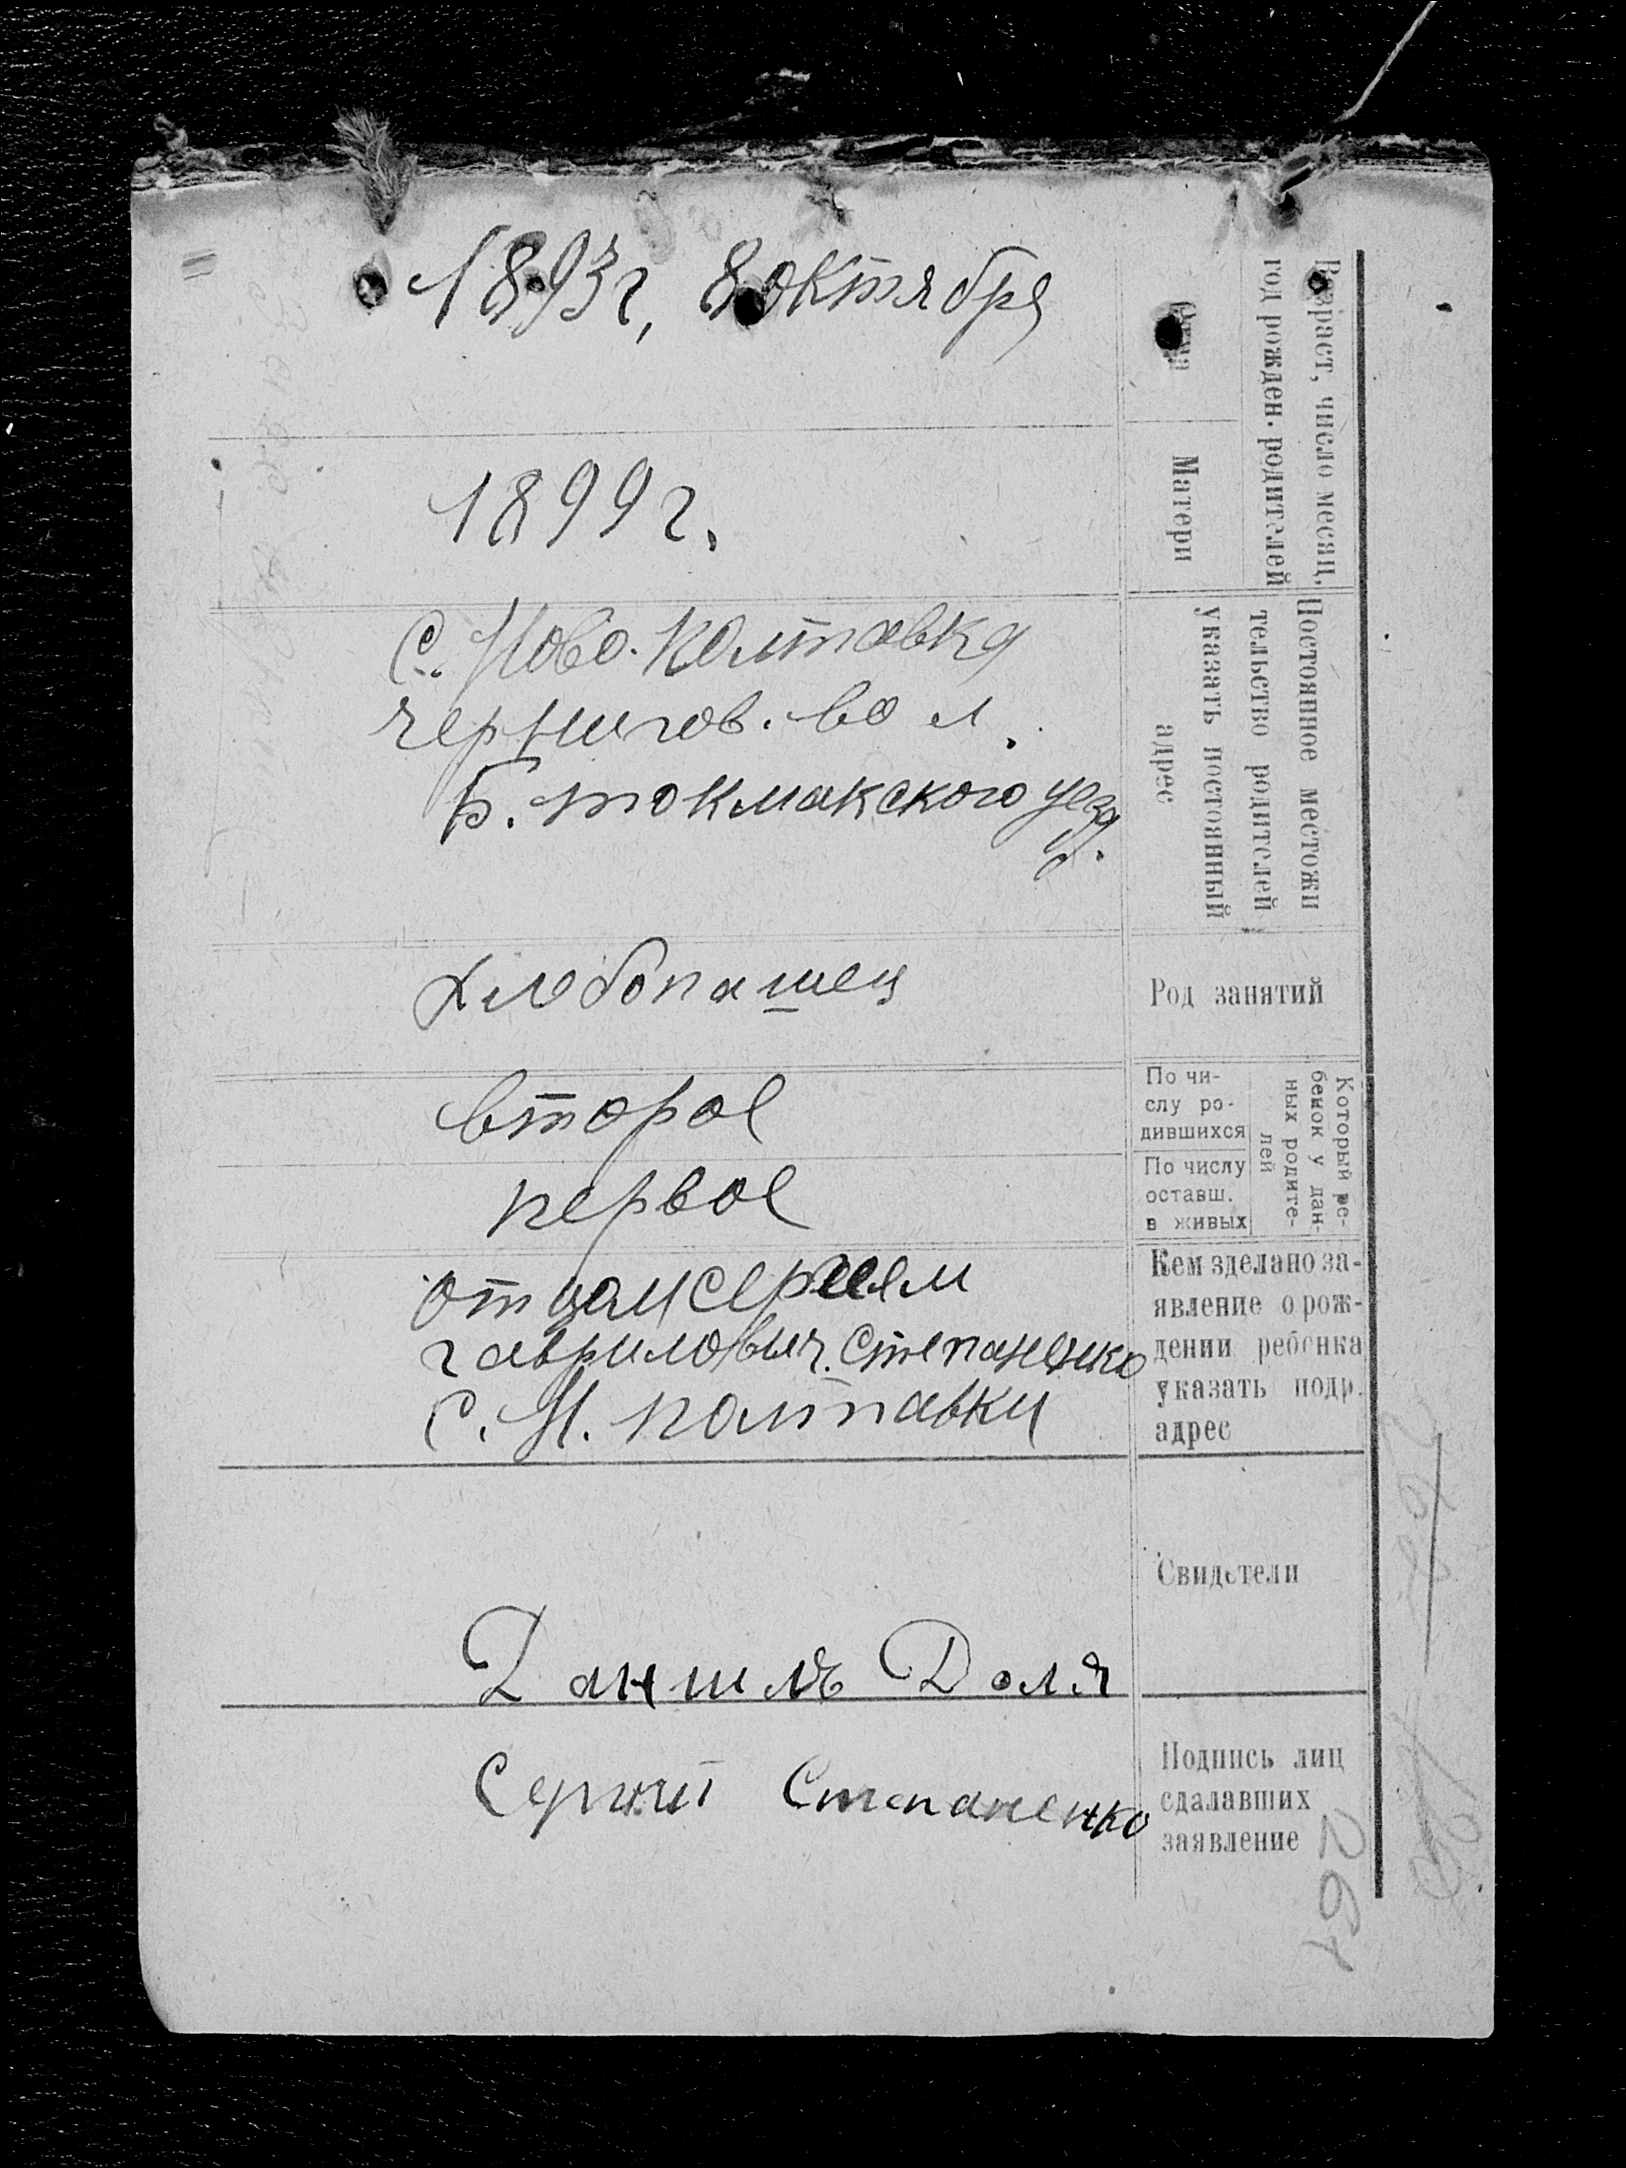 Возраст, число месяц,
год рожден. родителей
Отца
1893 г, 8 октября
Матери
1899 г.
Постоянное местожи
тельство родителей
указать постоянный
адрес
с. Ново-Полтавка
Чернигов. вол.
Б. токмакского уезд.
Род занятий
хлебопашец
Который ре-
бенок у дан-
ных родите-
лей
По чи-
слу ро-
дившихся
второе
По числу
оставш.
в живых
первое
Кем зделано за-
явление о рож-
дении ребенка
указать подр.
адрес
отцом Сергеем
Гаврилович. Степаненко
с. Н. Полтавки
Свидетели
Данилъ Доля
Подпись лиц
сдалавших
заявление
Сергий Степаненко
261